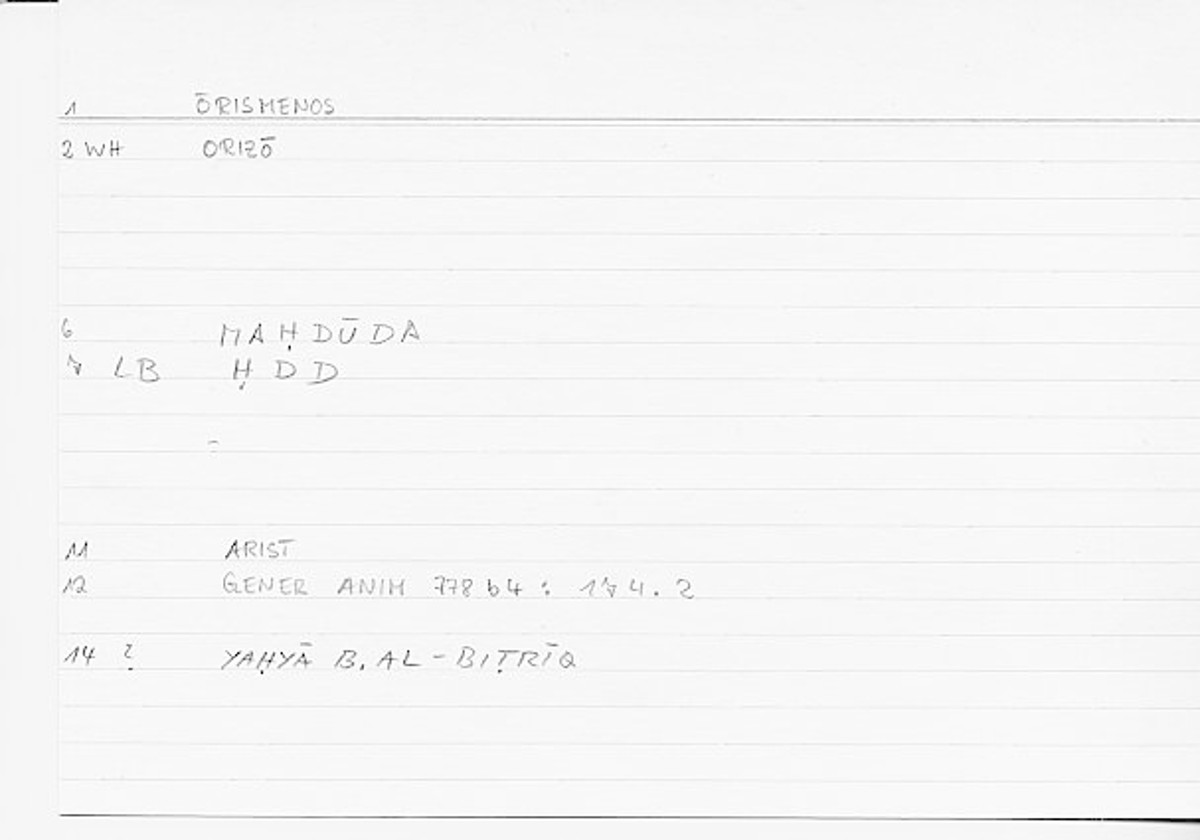 1 ŌRISMENOS
2 WH ORIZŌ
6 MAḤDŪDA
7 LB ḤDD
11 ARIST
12 GENER ANIM 778 b4 : 174.2
14 ? YAḤYĀ B. AL-BIṬRĪQ